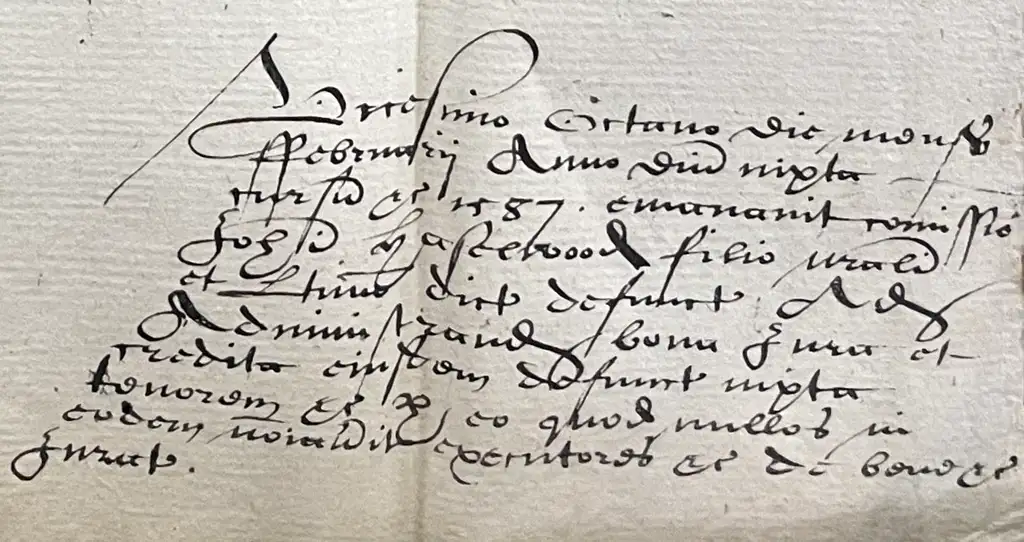 Vicesimo Octavo die mens
ffebruarij Anno dni iuxta
cursu &c 1587. emanavit comissio
Johi Haselwood filio nrali
et Ltimo dict defunct Ad
Administrand bona Jura et
credita eiusdem defunct iuxta
tenorem &c eo quod nullos in
eodem noiavit executores &c de bene &c
Jurat.